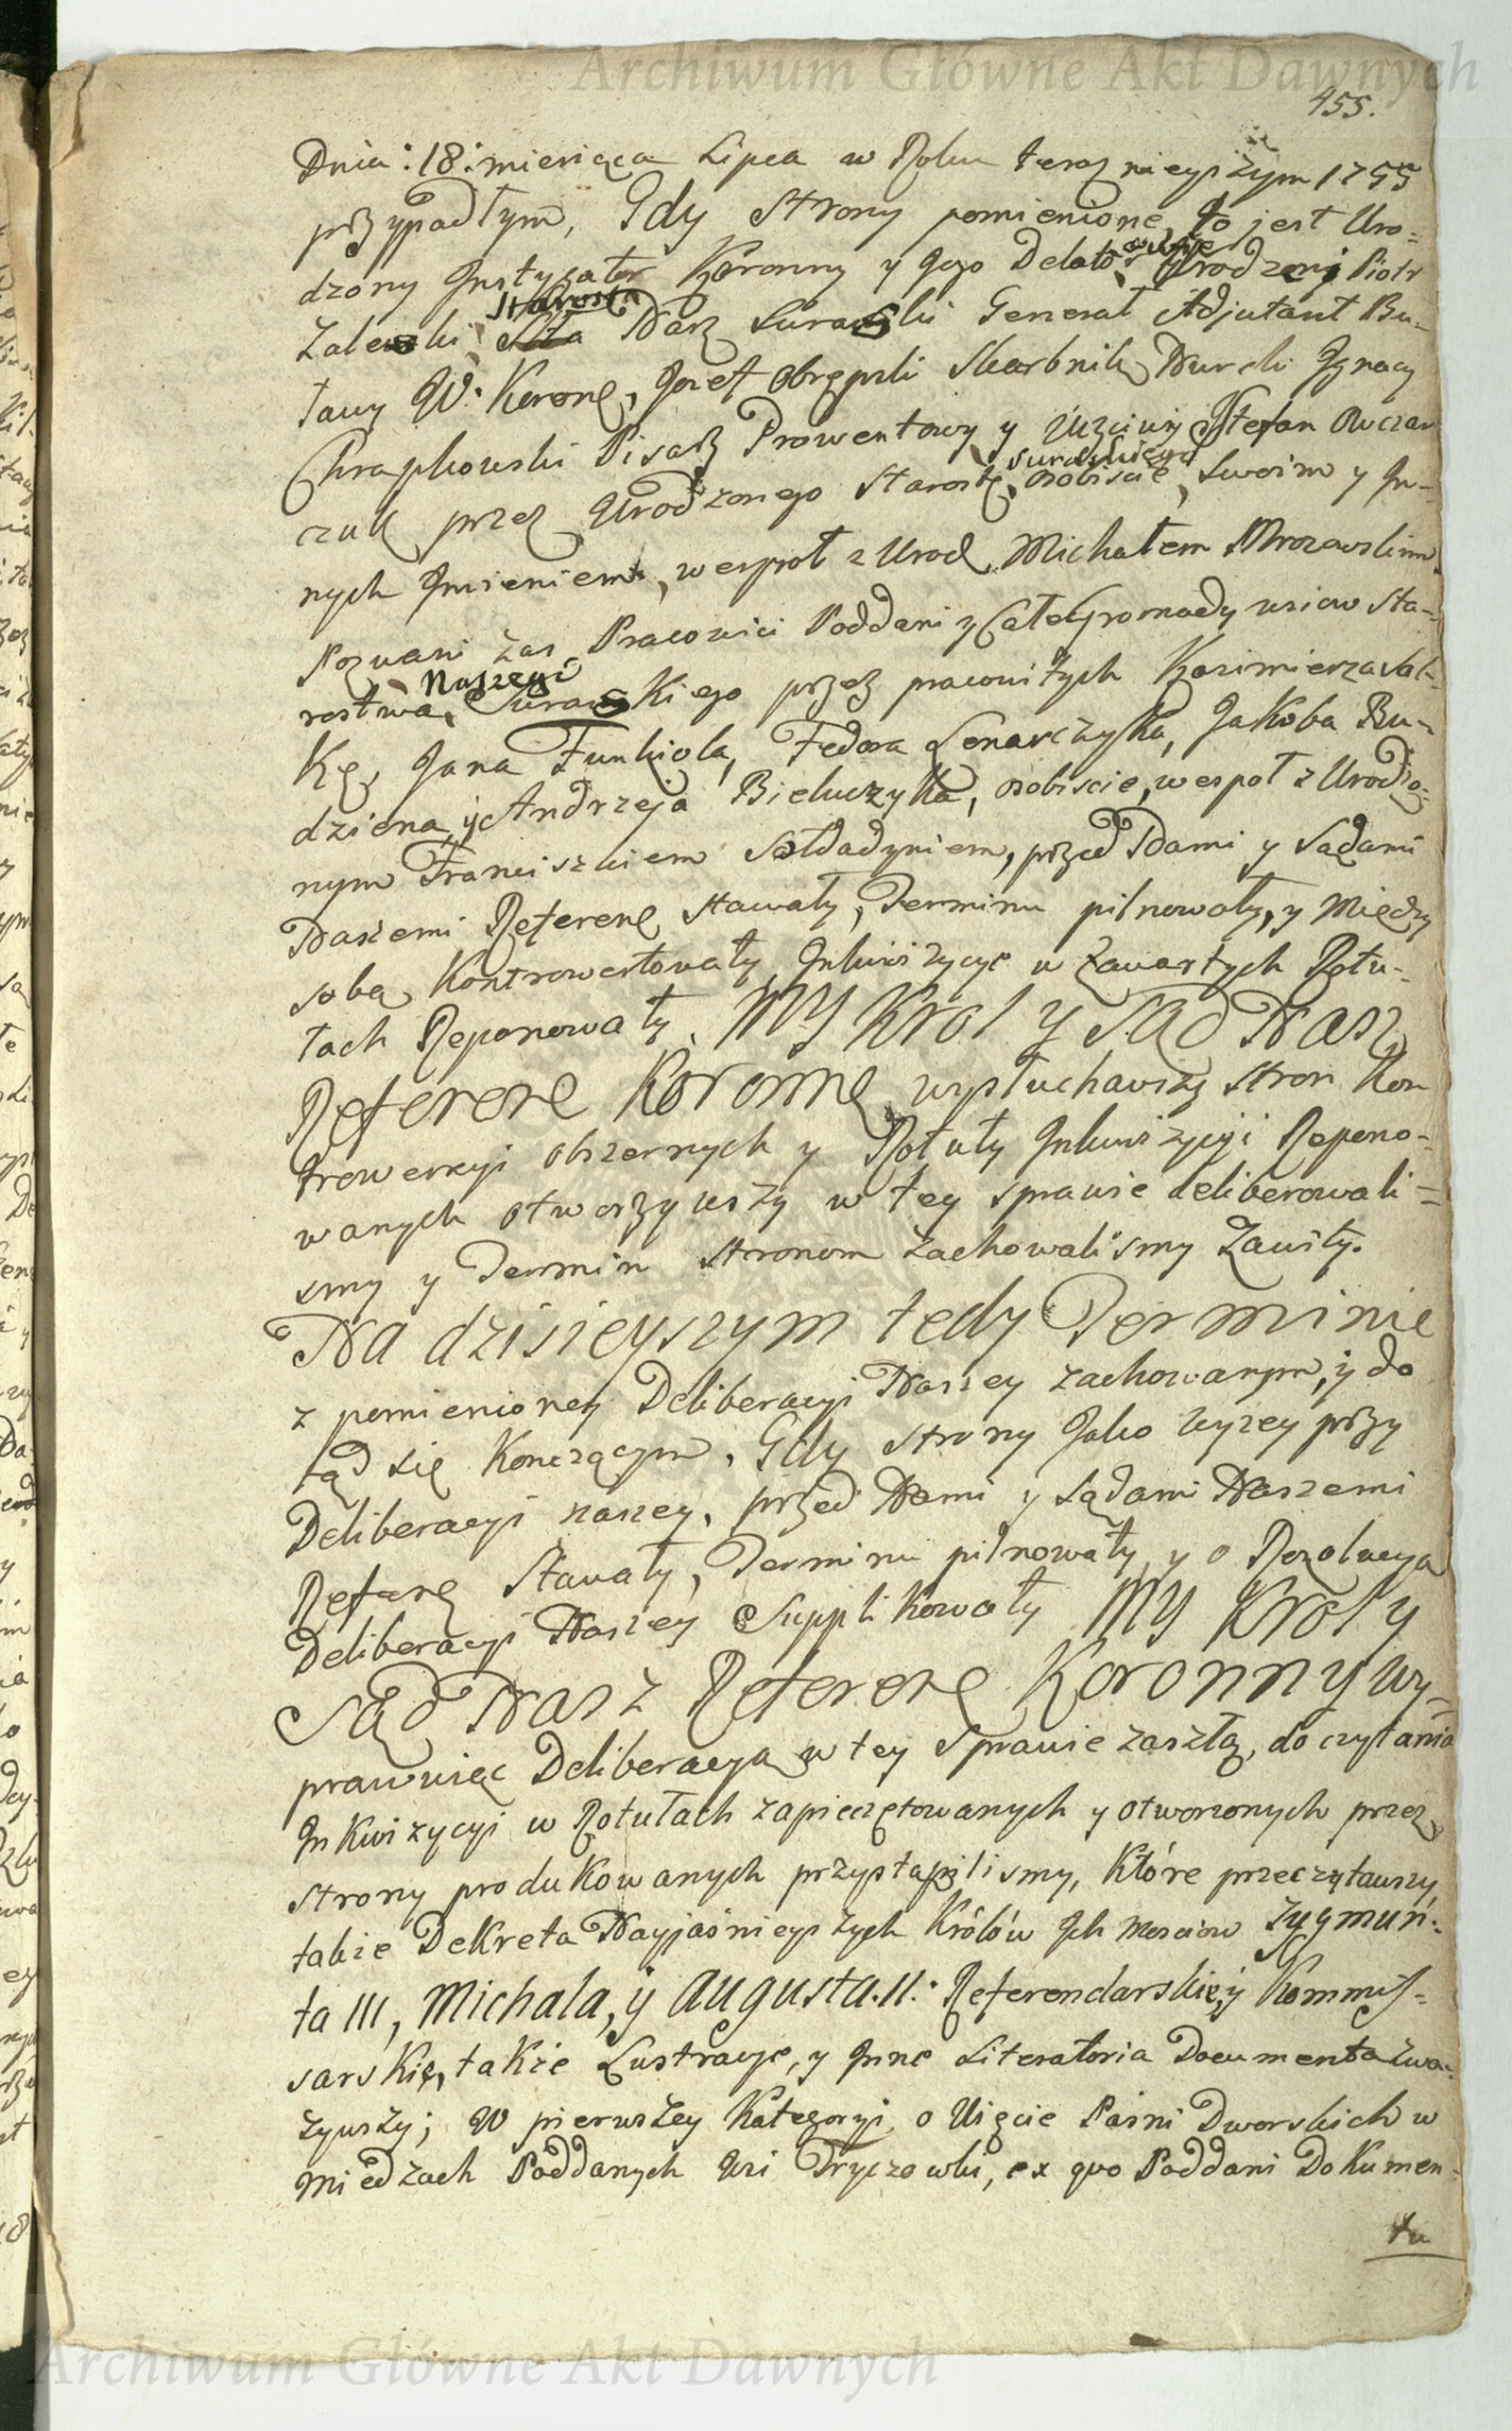 Archiwum Główne Akt Dawnych
455.
Dnia: 18: miesiąca Lipca w Roku teraznieyszym 1755
przypadłym, Gdy Strony pomienione, to jest Uro-
dzony Instygator Koronny y Jego Delator Urodzeni Piotr
Zalewski Starosta Nasz Suraski Generał Adjutant Bu-
ławy W. Koronę, Jozef Obrępski Skarbnik Nurski Ignacy
Chrapkowski Pisarz Prowentowy y Uczciwy Stefan Owczar
czuk przez Urodzonego Starostę Suraskiego osobiscie, Swoim y In-
nych Imieniem, wespoł z Urodz. Michałem Mrozowskim
Pozwani zas Pracowici Poddani y Całe Gromady wsiow Sta-
rostwa Naszego Suraskiego przez pracowitych Kazimierza Sol-
Kę, Jana Funkiola, Fedora Lonarczyka, Jakoba Bu-
dziena, y Andrzeja Bieluczyka, osobiscie, wespoł z Urodzo-
nym Franciszkiem Sołdadyniem, przed Nami y Sądami
Naszemi Referenę Stawały, Terminu pilnowały, y Między
sobą Kontrowertowały, Inkwizycye w Zawartych Rotu-
łach Reponowały. MY Krol y SĄD Nasz
Referenę Koronnę wysłuchawszy Stron Kon
trowersyi obszernych y Rotuły Inkwizycyi Repono-
wanych otworzywszy w tey sprawie deliberowali-
smy y Termin Stronom Zachowalismy Zawity.
Na dzisieyszym tedy Terminie
z pomienioney Deliberacyi Naszey zachowanym, y do
tąd się Konczącym, Gdy Strony Jako wyzey przy
Deliberacyi naszey, przed Nami y Sądami Naszemi
Referę Stawały, Terminu pilnowały, y o Rezolucyą
Deliberacyi Naszey Supplikowały MY Krol y
SĄD Nasz Referenę Koronny wy-
prawuięc Deliberacyą w tey Sprawie zaszłą, do czytania
Inkwizycyi w Rotułach zapieczętowanych y otworzonych przez
strony produkowanych przystąpilismy, Które przeczytawszy,
takze Dekreta Nayjaśnieyszych Królów Ich Mosciow Zygmun-
ta III, Michala, y Augusta. II. Referendarskie, y Kommis-
sarskie, także Lustracye, y Inne Literatoria Documenta zwa-
zywszy; W pierwszey Kategoryi o Uięcie Paśni Dworskich w
Miedzach Poddanych Wsi Tryczowki, ex quo Poddani Dokumen-
tu
Archiwum Główne Akt Dawnych